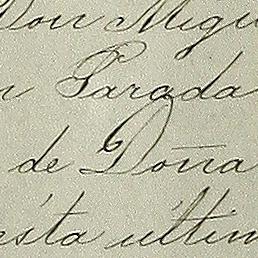 Don Migu
n Parada
de Doña
ésta últim